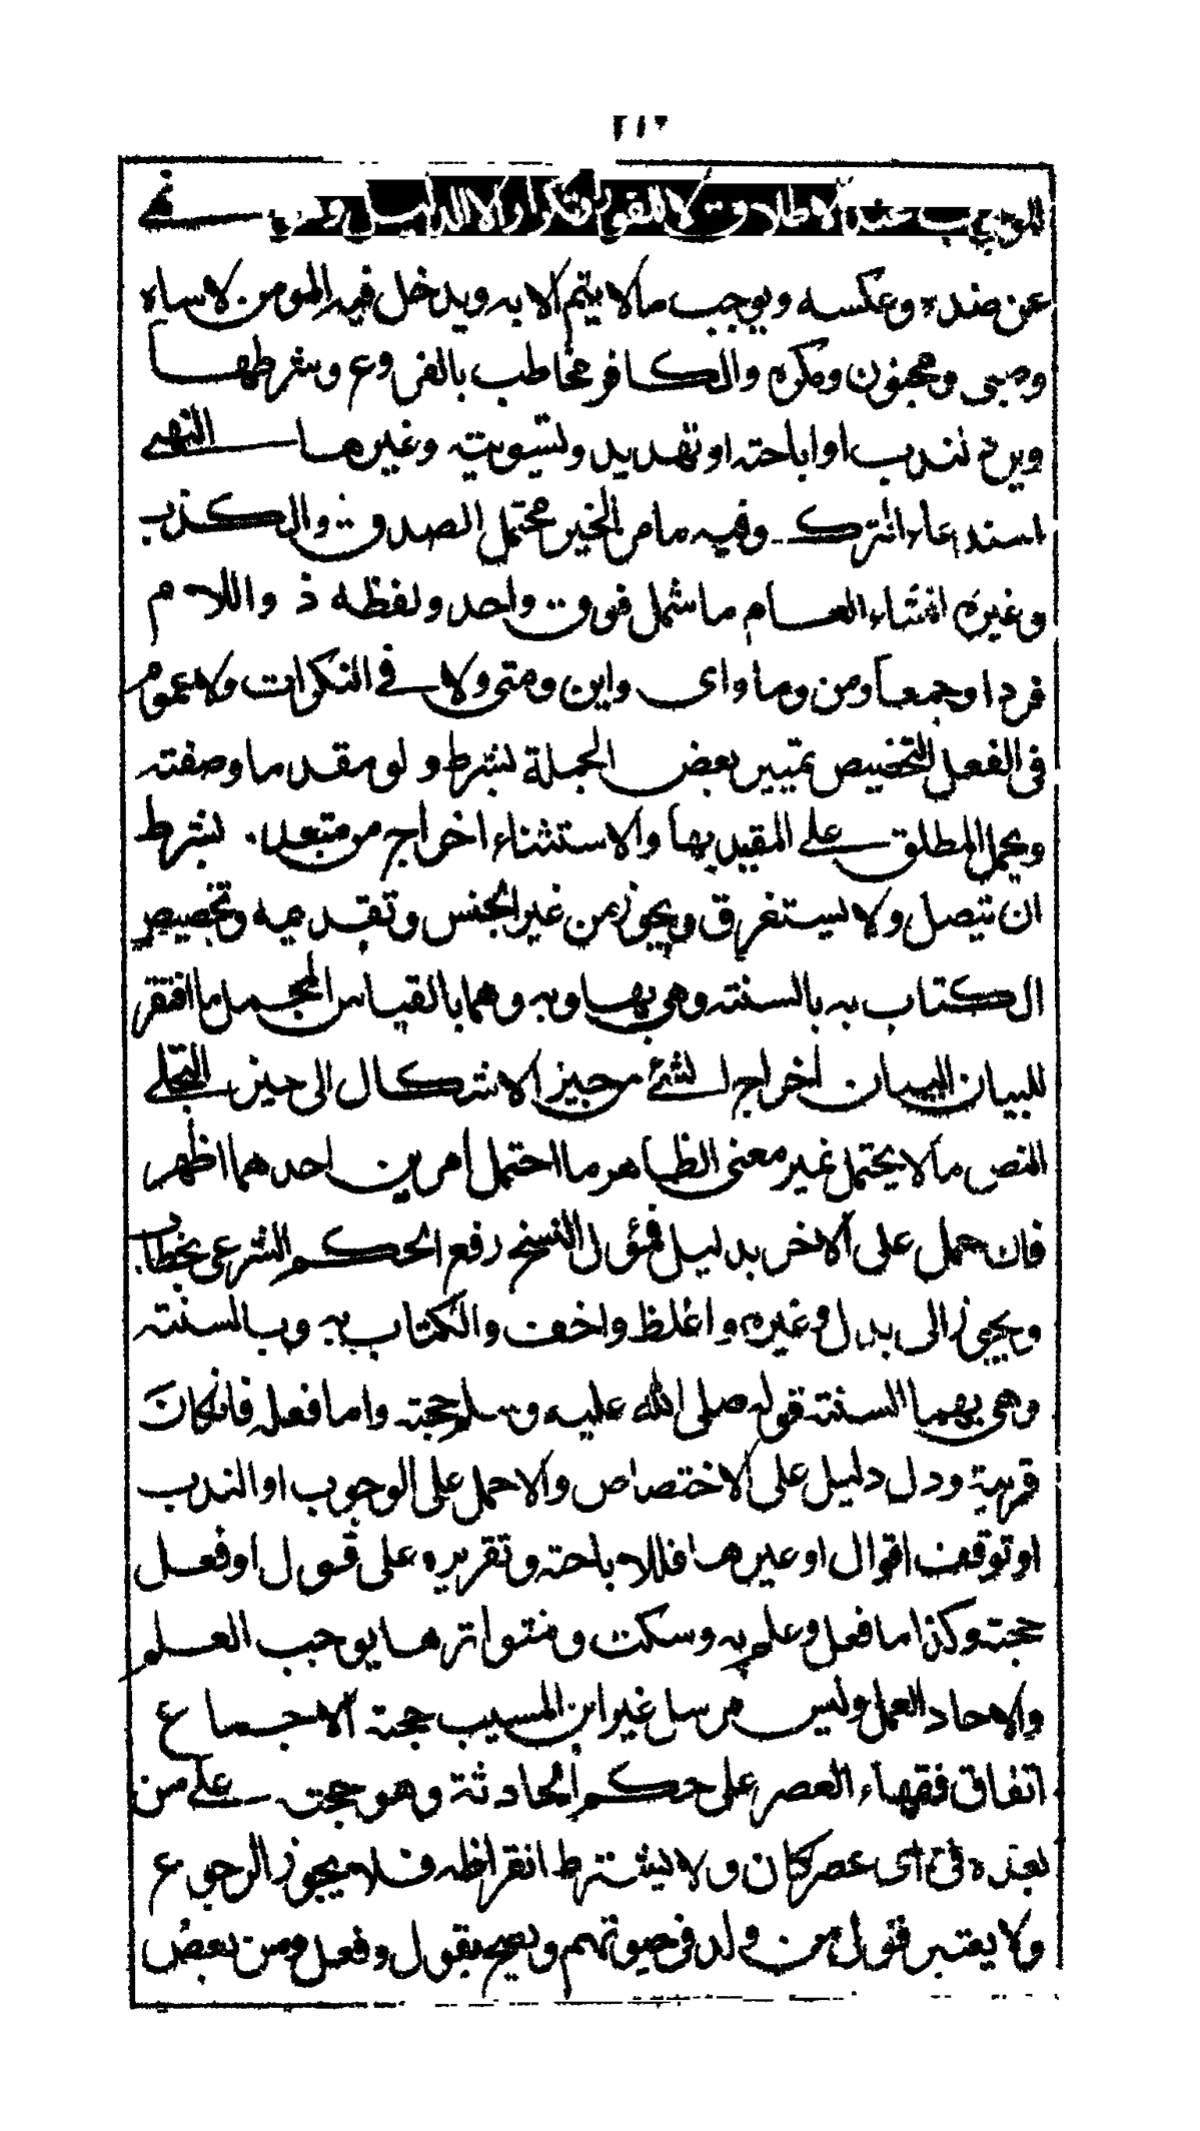 ٢١٢
للوجوب عند الاطلاق لا للفور او تكرار الا لدليل و نهي
عن ضده وعكسه ويوجب ما لا يتم الا به ويدخل فيه المومن لا ساه
وصبى ومجنون ومكره والكافر مخاطب بالفروع وشرطها
ويرد لندب او اباحته او تهديد وتسويته وغيرها النهي
استدعاء الترك وفيه ما مر الخبر محتمل الصدق والكذب
وغيره انشاء العام ما شمل فوق واحد ولفظه ذو اللام
فردا وجمعا ومن وما واى واين ومتى ولا في النكرات ولا عموم
فى الفعل التخصيص تمييز بعض الجملة بشرط ولو مقدما وصفته
ويحمل المطلق على المقيد بها والاستثناء اخراج من متعدد بشرط
ان يتصل ولا يستغرق ويجوز من غير الجنس وتقديمه وتخصيص
الكتاب به بالسنته وهى بها وبه وهما بالقياس المجمل ما افتقر
للبيان البيان اخراج الشئ من حيز الاشكال الى حيز التجلي
النص ما لا يحتمل غير معنى الظاهر ما احتمل امرين احدهما اظهر
فان حمل على الاخر بدليل فمؤل النسخ رفع الحكم الشرعى بخطاب
ويجوز الى بدل وغيره واغلظ واخف والكتاب به وبالسنته
وهى بهما السنته قوله صلى الله عليه وسلم حجته واما فعله فان كان
قربة ودل دليل على الاختصاص والا حمل على الوجوب او الندب
او توقف اقوال او غيرها فللاباحته وتقريره على قول او فعل
حجته وكذا ما فعل وعلم به وسكت ومتواترها يوجب العلم
والاحاد العمل وليس مرسل غير ابن المسيب حجته الاجماع
اتفاق فقهاء العصر على حكم الحادثة وهو حجته على من
بعده فى اى عصر كان ولا يشترط انقراضه فلا يجوز الرجوع
ولا يعتبر قول من ولد فى حيوتهم ويصح بقول وفعل ومن بعض